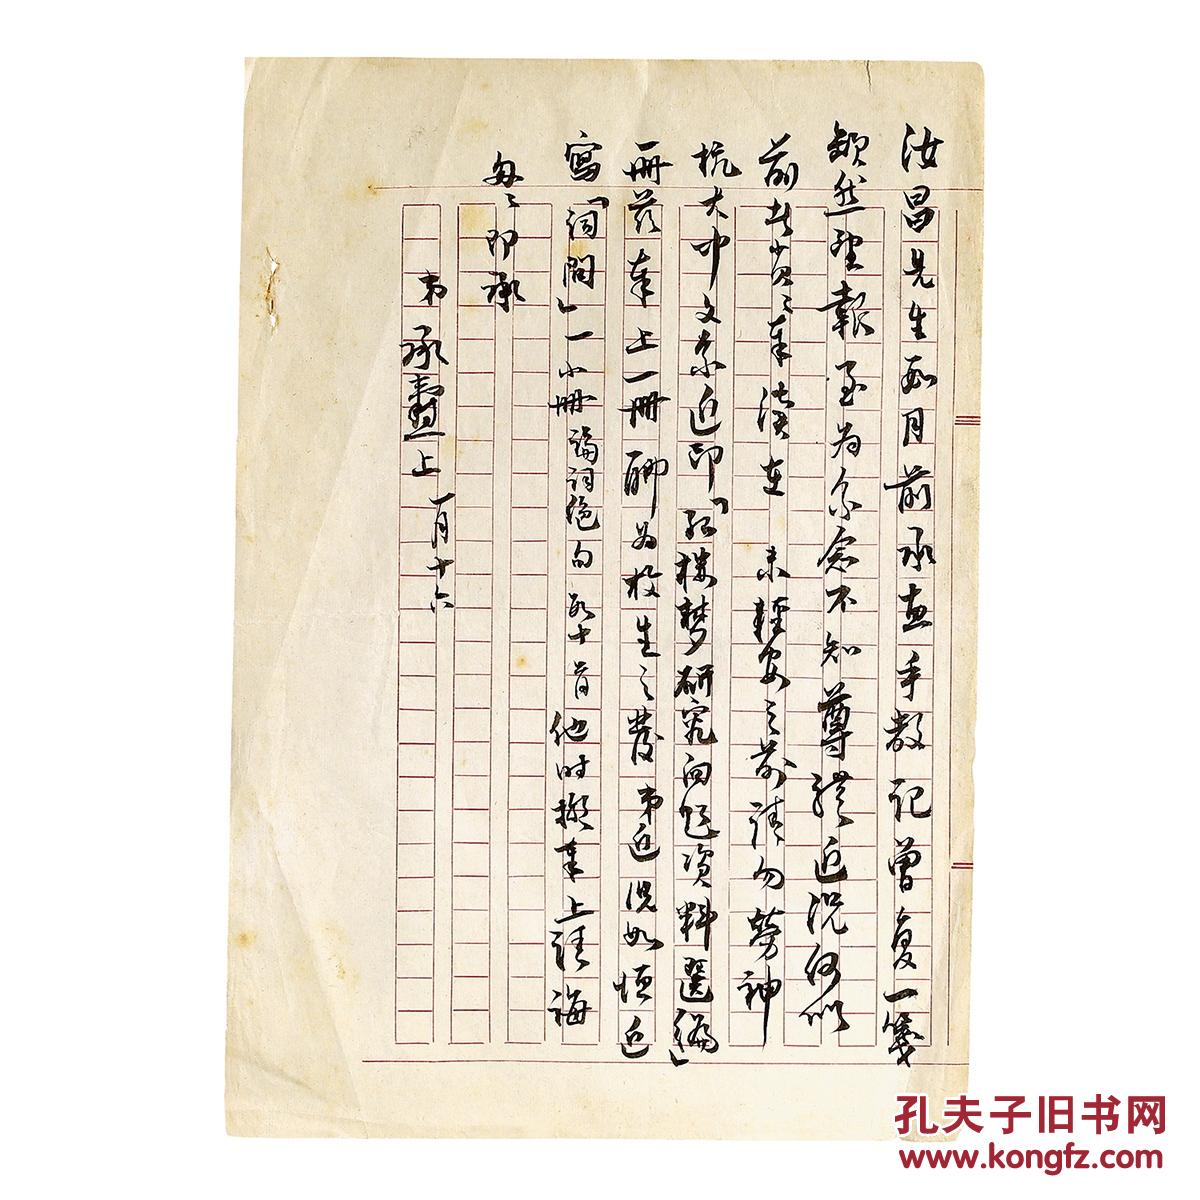 汝昌先生 月前承惠手教记曾复一笺
然 报至为系念不知尊体近况何似
前 奉渎在 未轻安之前请勿劳神
杭大中文系近印「红楼梦研究问题资料选编」
一册兹奉上一册聊为枚生之发弟近况如恒近
写「词问」一小册论词绝句 十首他时拟奉上请诲
匆匆即承
弟承焘上 一月十六
孔夫子旧书网
www.kongfz.com